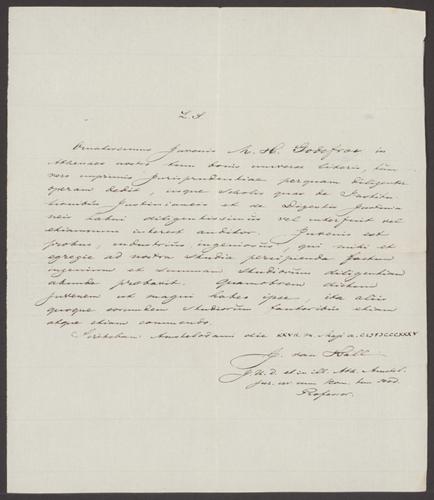 L. S
Ornatissimus Juvenis M. H. Godefroi in
Athenaeo nostro tum bonis universe literis, tum
vero imprimis Jurisprudentiae perquam diligenter
operam dedit, inque Scholis quas de Institu-
tionibus Justinianeis et de Digestis Justinia
neis habui diligentissimus vel interfuit vel
etiamnum interest auditor. Juvenis est
probus, industrius, ingeniosus, qui mihi et
egregie ad nostra studia percipienda factum
ingenium et summam Studiorum diligentiam
abunde probavit. Quamobrem dictum
juvenem ut magni habeo ipse, ita aliis
quoque eorumdem Studiorum fautoribus etiam
atque etiam commendo.
Scribebam Amstelodami die XXVII m. Maji a. CIↃIↃCCCXXXV
J. van Hall
J. U. D. et in ill. Ath. Amstel.
Jur. rom hod.
Professor